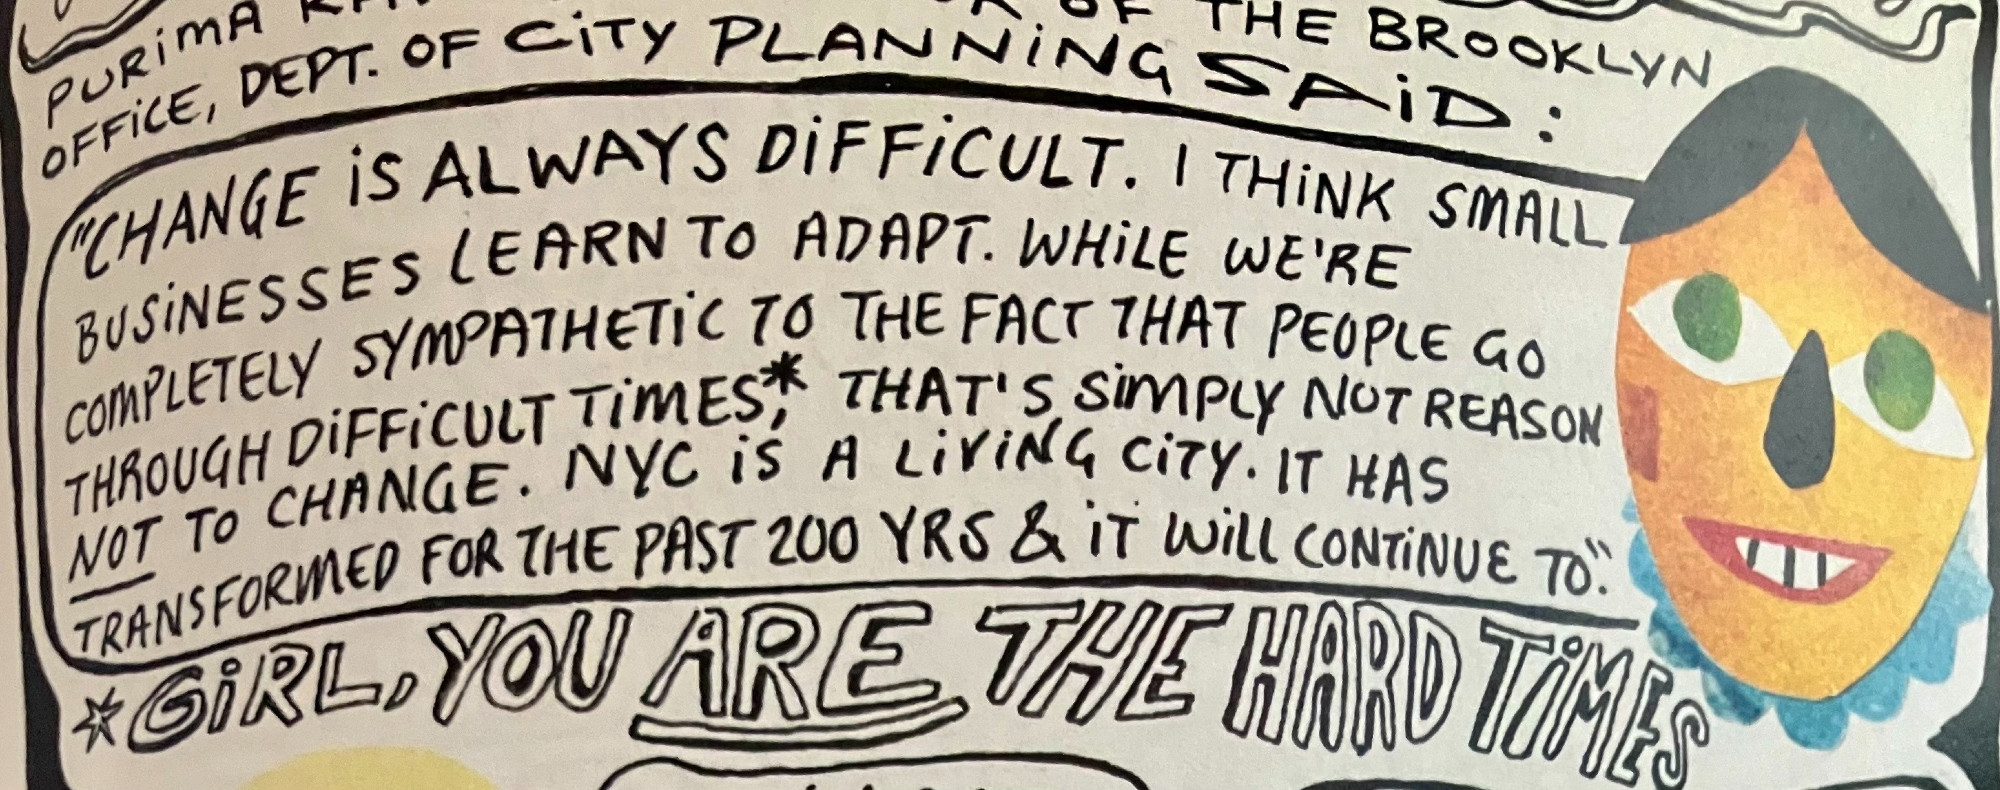 PURiMA OF THE BROOKLYN
OFFiCE, DEPT. OF CiTY PLANNiNG SAiD:
"CHANGE iS ALWAYS DiFFiCULT. I THiNK SMALL
BUSiNESSES LEARN TO ADAPT. WHiLE WE'RE
COMPLETELY SYMPATHETiC TO THE FACT THAT PEOPLE GO
THROUGH DiFFiCULT TiMES,* THAT'S SiMPLY NOT REASON
NOT TO CHANGE. NYC iS A LiViNG CiTY. IT HAS
TRANSFORMED FOR THE PAST 200 YRS & iT WiLL CONTiNUE TO."
*GiRL, YOU ARE THE HARD TiMES